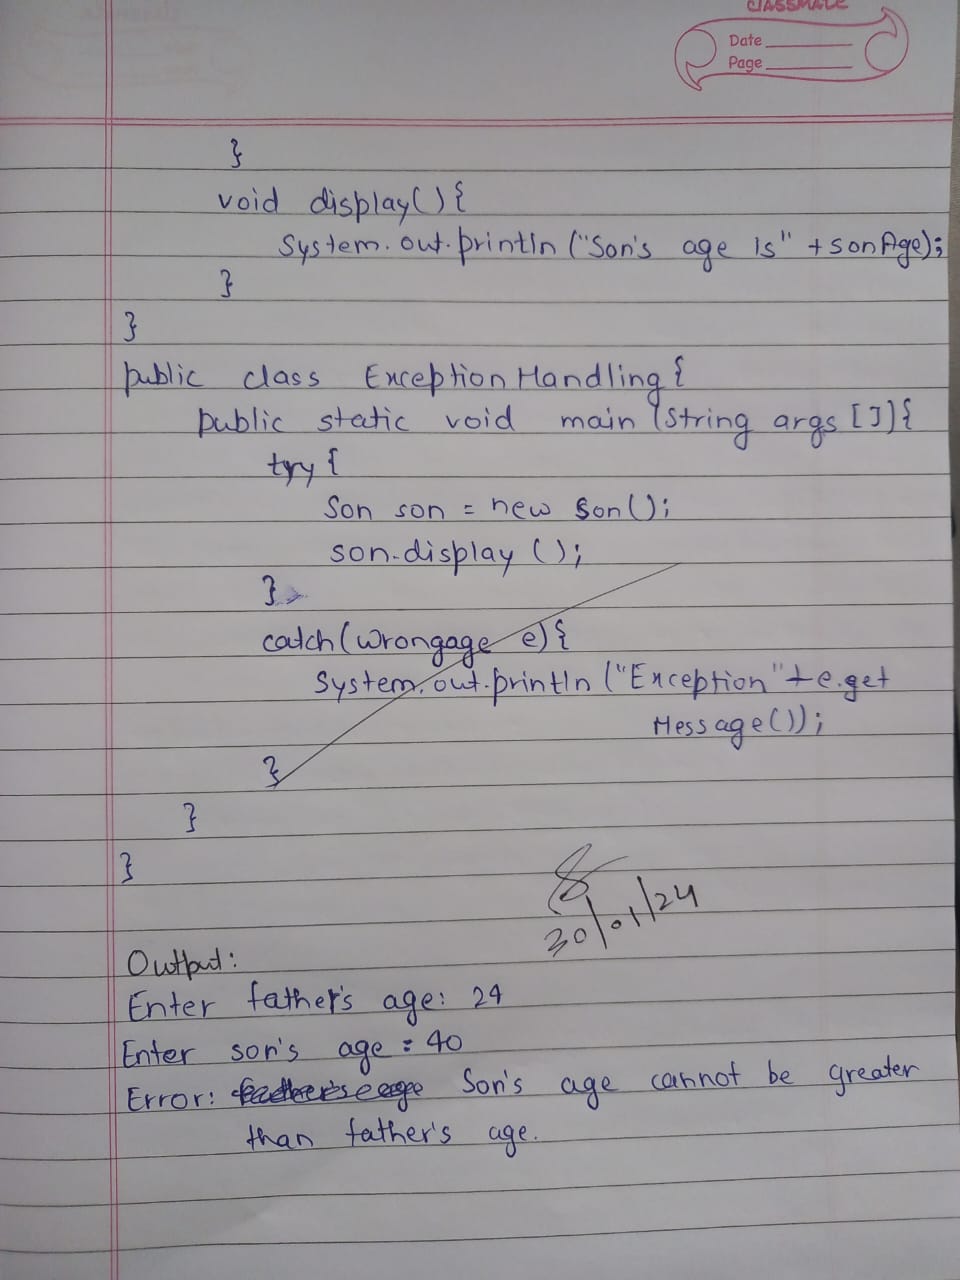 classmate
Date
Page
}
void display(){
System.out.println("Son's age is" + sonAge);
}
}
public class ExceptionHandling{
public static void main(String args[]){
try{
Son son = new Son();
son.display();
}
catch(wrongage e){
System.out.println("Exception"+e.get
Message());
}
}
}
30/01/24
Output:
Enter father's age: 24
Enter son's age: 40
Error: Son's age cannot be greater
than father's age.